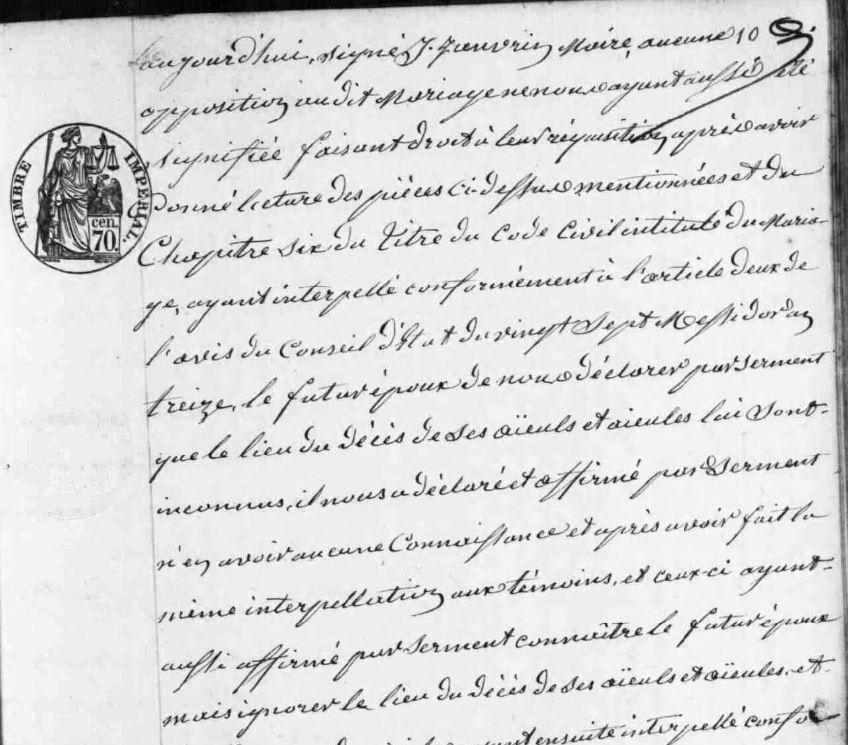 aujourd'hui, signé J. Janvrin Maire, aucune 10
opposition au dit Mariage ne nous ayant aussi été
signifiée faisant droit à leur réquisition, après avoir
TIMBRE IMPERIAL.
cen.
70.
donné lecture des pièces ci-dessus mentionnées et du
Chapitre six du Titre du Code Civil intitulé du Maria-
ge, ayant interpellé conformément à l'article deux de
l'avis du Conseil d'État du vingt Sept Messidor an
treize, le futur époux de nous déclarer par serment
que le lieu du décès de ses aïeuls et aïeules lui sont
inconnus, il nous a déclaré et affirmé par Serment
n'en avoir aucune Connaissance et après avoir fait la
même interpellation aux témoins, et ceux-ci ayant
aussi affirmé par Serment connaître le futur époux
mais ignorer le lieu du décès de ses aïeuls et aïeules, et
ensuite interpellé confo